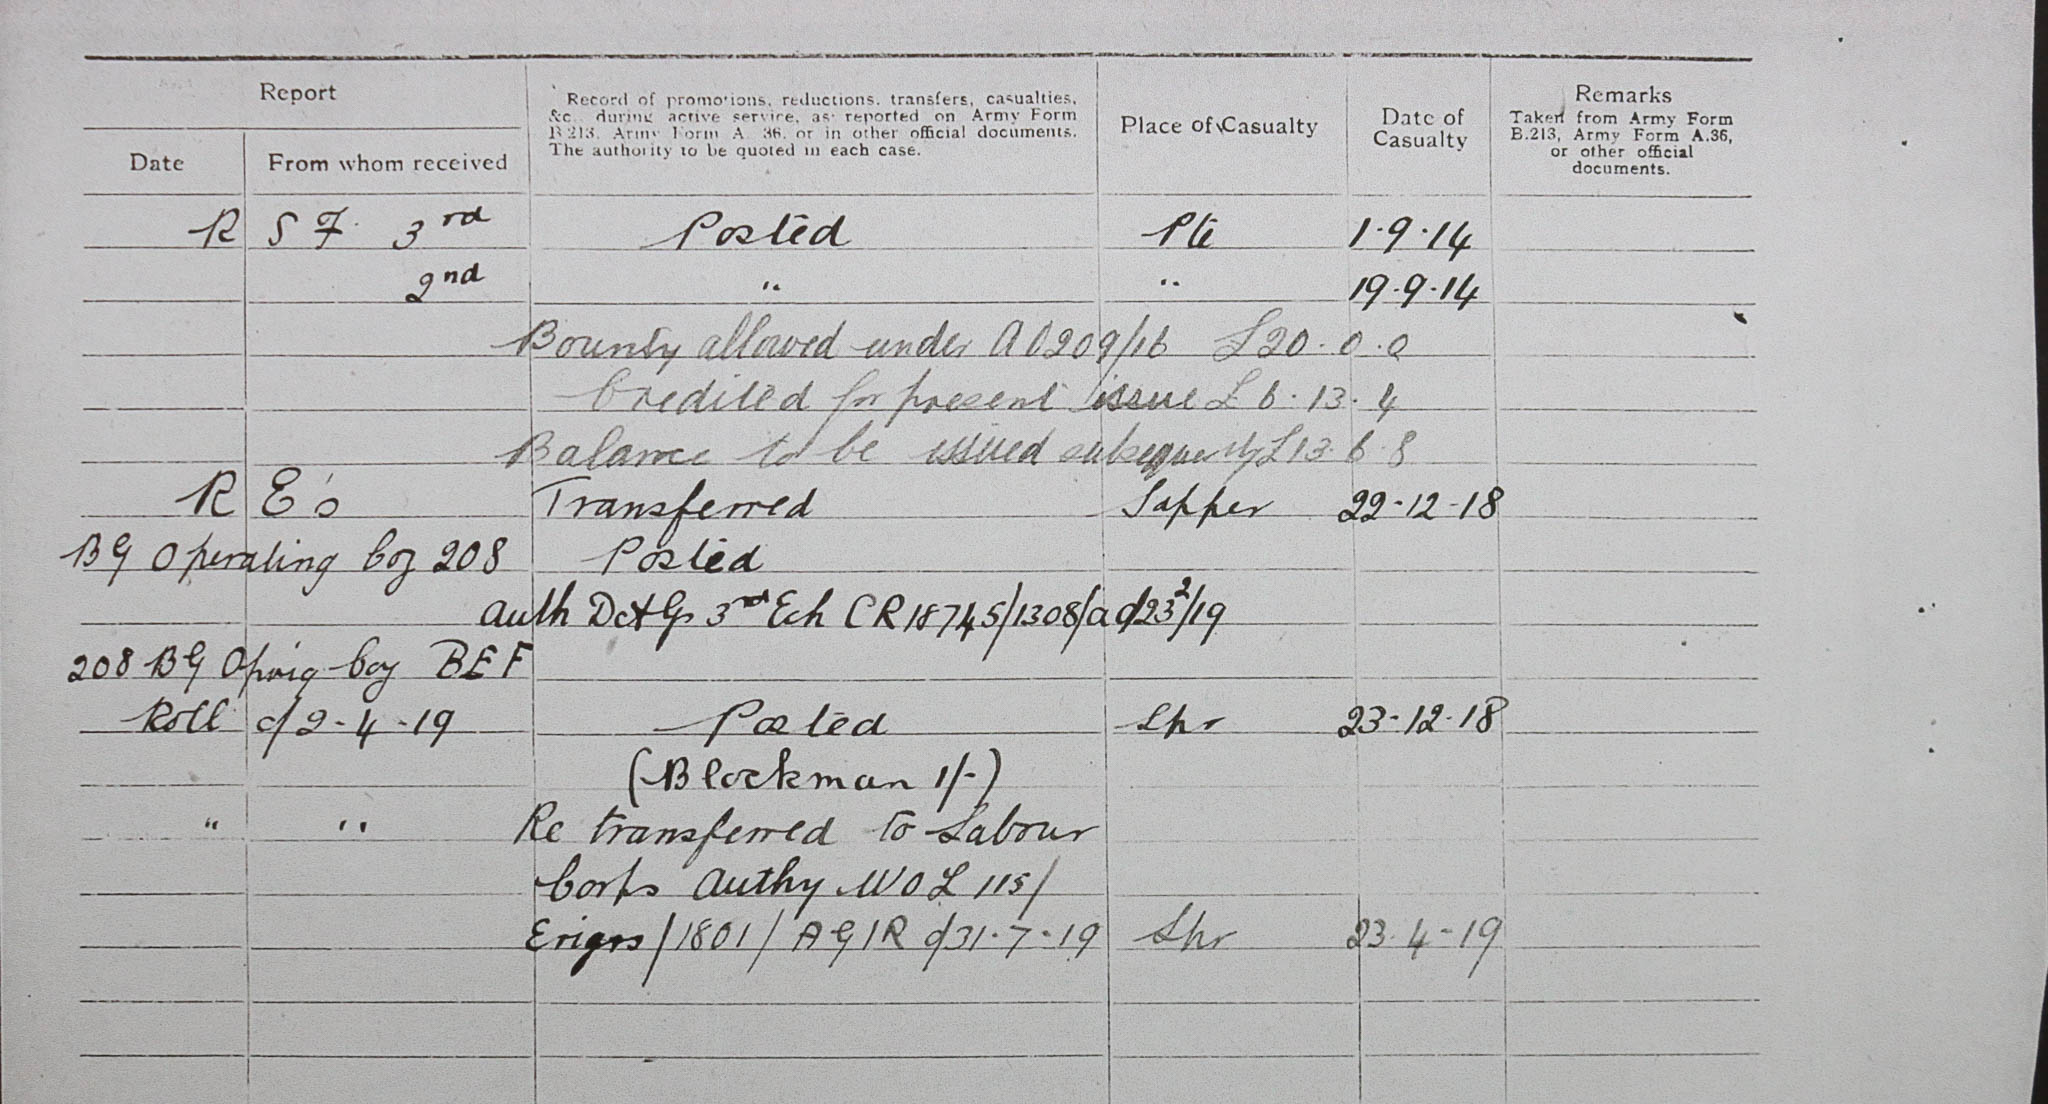 Report
Date
From whom received
Record of promotions, reductions, transfers, casualties,
&c., during active service, as reported on Army Form
B.213, Army Form A. 36, or in other official documents.
The authority to be quoted in each case.
Place of Casualty
Date of
Casualty
Remarks
Taken from Army Form
B.213, Army Form A.36,
or other official
documents.
R S F 3rd Posted Pte 1.9.14
2nd " " 19.9.14
Bounty allowed under AO209/16 £20.0.0
Credited for present issue £6.13.4
Balance to be issued subsequently £13.6.8
R E's Transferred Sapper 22-12-18
BG Operating Coy 208 Posted
Auth 3rd Ech CR 18745/1308/a d/23/2/19
208 BG Oprig Coy BEF
Roll d/2-4-19 Posted Spr 23-12-18
(Blockman 1/-)
" " Re transferred to Labour
Corps Authy WOL 115/
/1801/ AG1R d/31-7-19 Spr 23-4-19